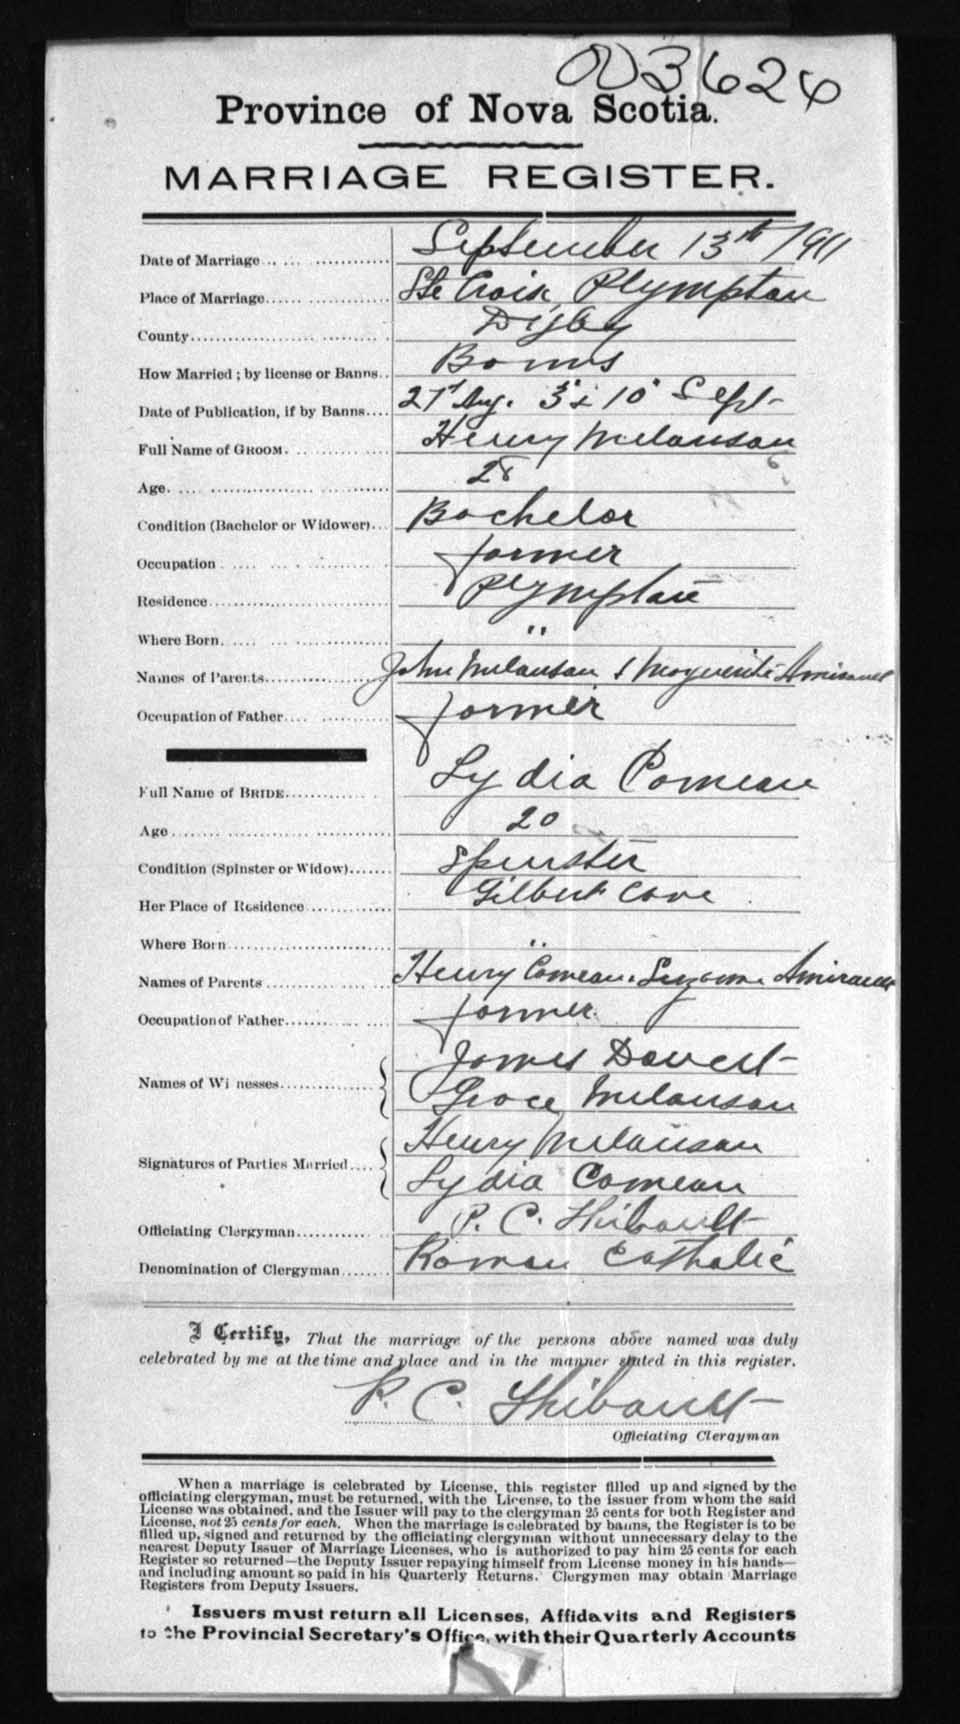 003626
Province of Nova Scotia.
MARRIAGE REGISTER.
Date of Marriage September 13th 1911
Place of Marriage Ste Croix Plympton
County Digby
How Married ; by license or Banns Banns
Date of Publication, if by Banns 27 Aug. 3 & 10 Sept
Full Name of GROOM Henry Melanson
Age 28
Condition (Bachelor or Widower) Bachelor
Occupation farmer
Residence Plympton
Where Born "
Names of Parents John Melanson & Marguerite Amirault
Occupation of Father farmer
Full Name of BRIDE Lydia Comeau
Age 20
Condition (Spinster or Widow) Spinster
Her Place of Residence Gilbert Cove
Where Born "
Names of Parents Henry Comeau. Suzanne Amirault
Occupation of Father farmer.
James
Names of Witnesses Grace Melanson
Henry Melanson
Signatures of Parties Married Lydia Comeau
Officiating Clergyman P. C. Thibault
Denomination of Clergyman Roman Catholic
I Certify, That the marriage of the persons above named was duly
celebrated by me at the time and place and in the manner stated in this register.
P. C. Thibault
Officiating Clergyman
When a marriage is celebrated by License, this register filled up and signed by the
officiating clergyman, must be returned, with the License, to the issuer from whom the said
License was obtained, and the Issuer will pay to the clergyman 25 cents for both Register and
License, not 25 cents for each. When the marriage is celebrated by banns, the Register is to be
filled up, signed and returned by the officiating clergyman without unnecessary delay to the
nearest Deputy Issuer of Marriage Licenses, who is authorized to pay him 25 cents for each
Register so returned—the Deputy Issuer repaying himself from License money in his hands—
and including amount so paid in his Quarterly Returns. Clergymen may obtain Marriage
Registers from Deputy Issuers.
Issuers must return all Licenses, Affidavits and Registers
to the Provincial Secretary's Office, with their Quarterly Accounts